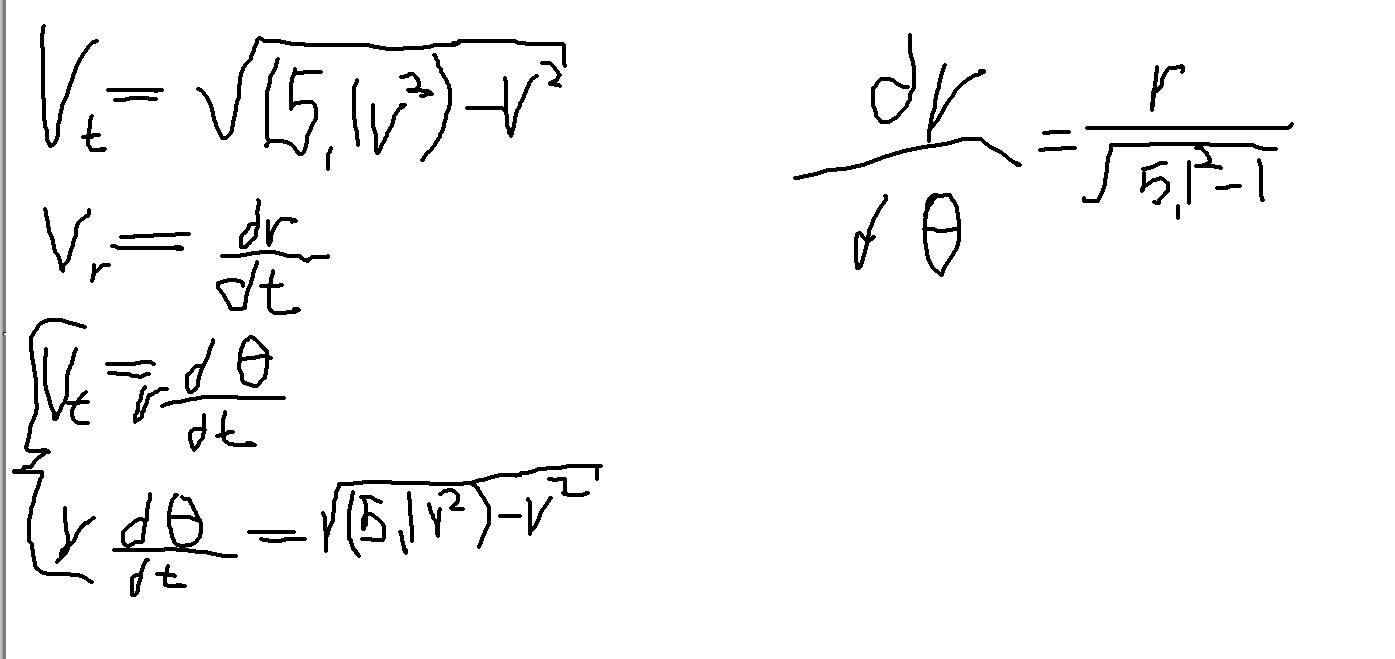 V_t = √((5,1v²) - v²)
V_r = dr/dt
V_t = r dθ/dt
r dθ/dt = √((5,1v²) - v²)
dr/dθ = r/√(5,1² - 1)